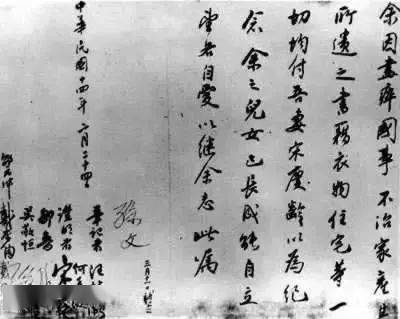 余因盡瘁國事不治家產其
所遺之書籍衣物住宅等一
切均付吾妻宋慶齡以為紀
念余之兒女已長成能自立
望各自愛以繼余志此囑
孫文
三月十一日補簽
中華民國十四年二月二十四
筆記者汪
證明者宋
何
邵
吳敬恆
戴
鄒